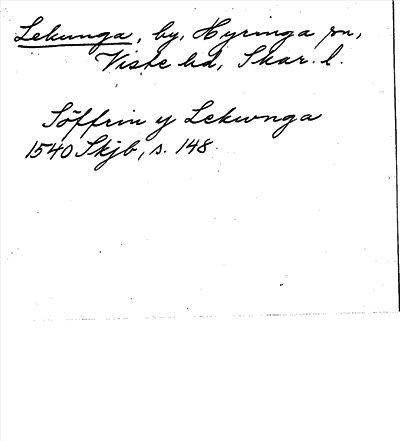 Lekunga, by, Hyringa sn,
Viste hd, Skar. l.
Söffrin y Lekwnga
1540 Skjb, s. 148.